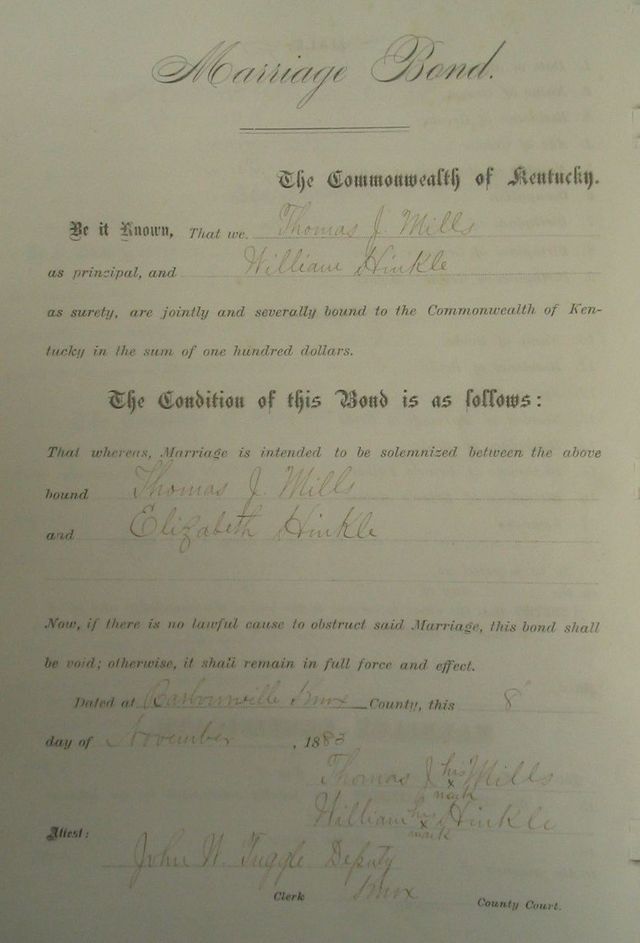 Marriage Bond.
The Commonwealth of Kentucky.
Be it Known, That we Thomas J. Mills
as principal, and William Hinkle
as surety, are jointly and severally bound to the Commonwealth of Ken-
tucky in the sum of one hundred dollars.
The Condition of this Bond is as follows:
That whereas, Marriage is intended to be solemnized between the above
bound Thomas J. Mills
and Elizabeth Hinkle
Now, if there is no lawful cause to obstruct said Marriage, this bond shall
be void; otherwise, it shall remain in full force and effect.
Dated at Barbourville Knox County, this 8
day of November, 1883
Thomas J his x mark Mills
William his x mark Hinkle
Attest:
John W. Tuggle Deputy
Clerk Knox County Court.